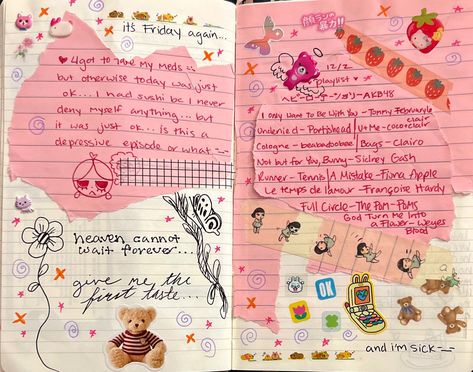 it's Friday again...
♥ 4got to take my meds...
but otherwise today was just
ok... I had sushi bc I never
deny myself anything... but
it was just ok... is this a
depressive episode or what -_-
heaven cannot
wait forever...
give me the
first taste...
顔ランの
暴力!!
12/2
playlist
ヘビーローテーション-AKB48
I Only Want To Be With You - Tommy February6
Undenied - Portishead | U+Me - coco & clair clair
Cologne - beabadoobee | Bags - Clairo
Not but for You, Bunny - Sidney Gish
Runner - Tennis | A Mistake - Fiona Apple
Le temps de l'amour - Françoise Hardy
Full Circle - The Pom-Poms
God Turn Me Into
a Flower - Weyes
Blood
OK
and i'm sick -_-